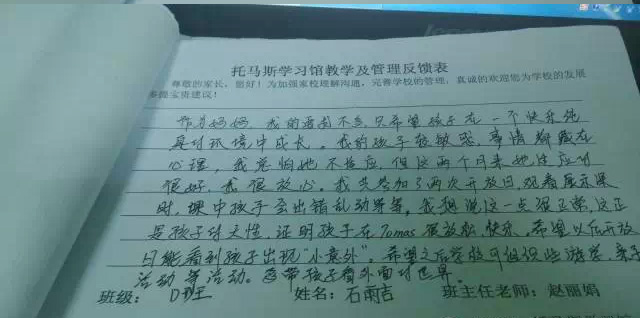 托马斯学习馆教学及管理反馈表
尊敬的家长，您好！为加强家校理解沟通，完善学校的管理，真诚的欢迎您为学校的发展
多提宝贵建议！
作为妈妈，我的要求不高，只希望孩子在一个快乐纯
真的环境中成长。我的孩子较敏感，事情都藏在
心理，我总怕她不适应，但这两个月来她适应的
很好，我很放心。我共参加了两次开放日，观看展示课
时，课中孩子会出错乱动等等，我想说这一点很正常，这正
是孩子的天性，证明孩子在Tomas里放松、快乐，希望以后开放
日能看到孩子出现“小意外”。希望之后学校可组织些游学、亲子
活动等活动。带孩子看外面的世界。
班级： D班 姓名：石雨吉 班主任老师：赵丽娟